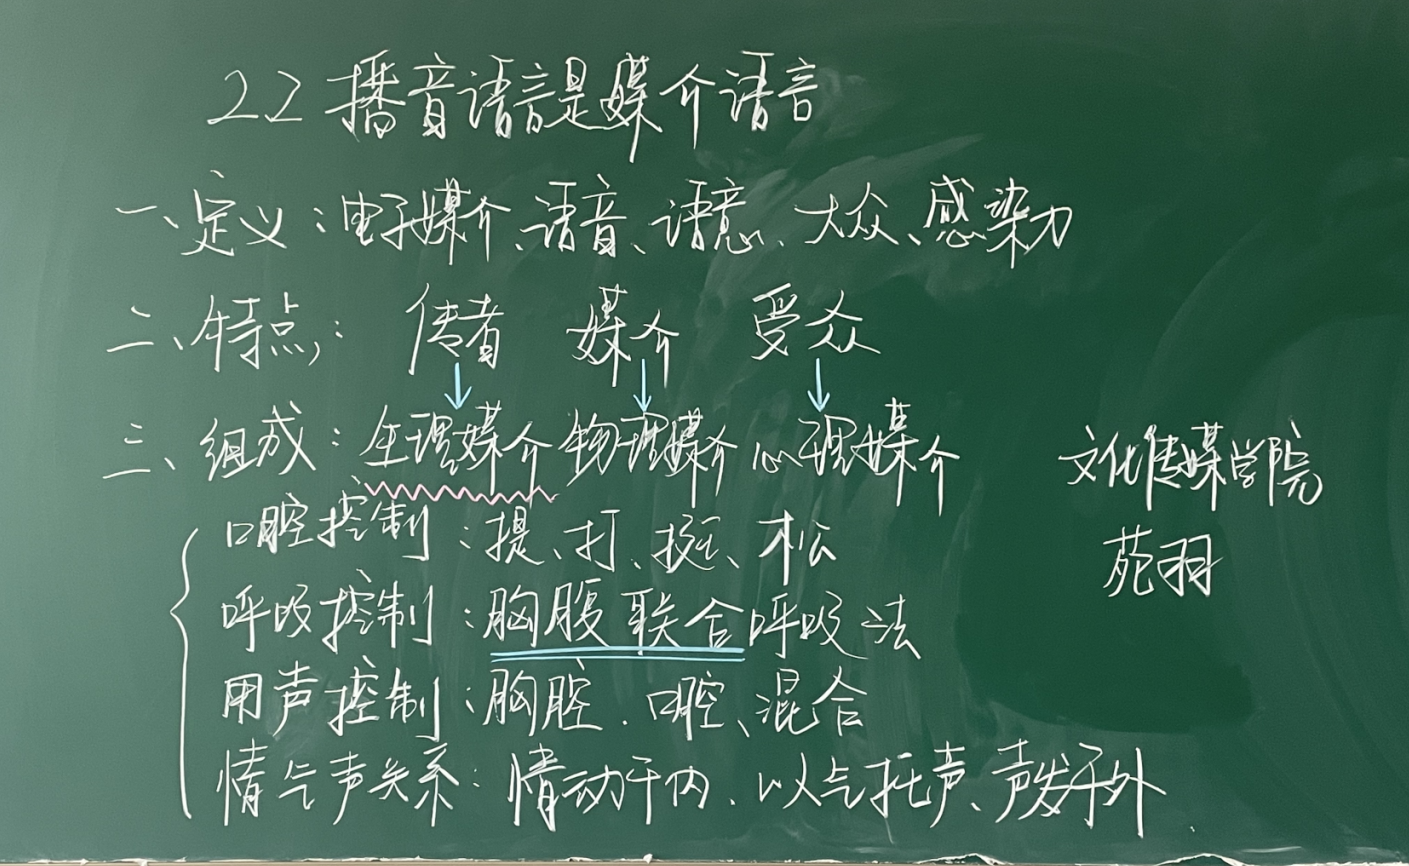 2.2 播音语言是媒介语言
一、定义：电子媒介、语音、语意、大众、感染力
二、特点：传者 媒介 受众
三、组成：生理媒介 物理媒介 心理媒介
口腔控制：提、打、挺、松
呼吸控制：胸腹联合呼吸法
用声控制：胸腔、口腔、混合
情气声关系：情动于内、以气托声、声发于外
文化传媒学院
苑羽